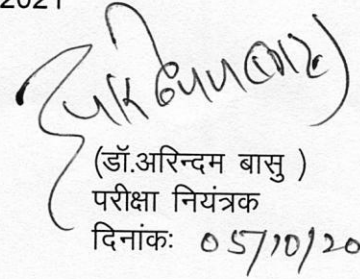 2021
(डॉ.अरिन्दम बासु )
परीक्षा नियंत्रक
दिनांकः 05/10/20